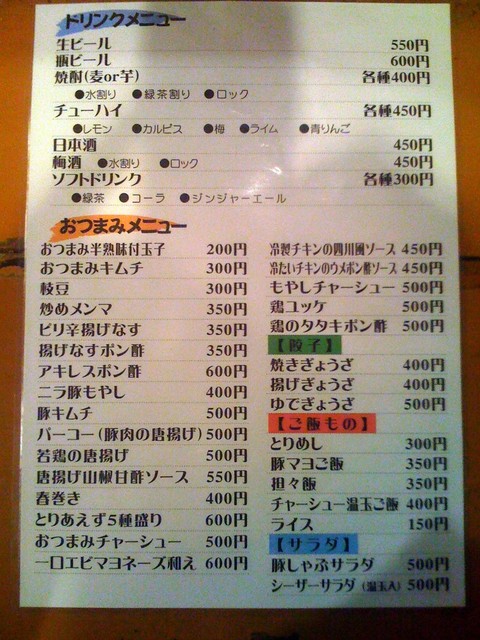 ドリンクメニュー
生ビール 550円
瓶ビール 600円
焼酎(麦or芋) 各種400円
●水割り ●緑茶割り ●ロック
チューハイ 各種450円
●レモン ●カルピス ●梅 ●ライム ●青りんご
日本酒 450円
梅酒 ●水割り ●ロック 450円
ソフトドリンク 各種300円
●緑茶 ●コーラ ●ジンジャーエール
おつまみメニュー
おつまみ半熟味付玉子 200円
おつまみキムチ 300円
枝豆 300円
炒めメンマ 350円
ピリ辛揚げなす 350円
揚げなすポン酢 350円
アキレスポン酢 600円
ニラ豚もやし 400円
豚キムチ 500円
パーコー(豚肉の唐揚げ) 500円
若鶏の唐揚げ 500円
唐揚げ山椒甘酢ソース 550円
春巻き 400円
とりあえず5種盛り 600円
おつまみチャーシュー 500円
一口エビマヨネーズ和え 600円
冷製チキンの四川風ソース 450円
冷たいチキンのウメポン酢ソース 450円
もやしチャーシュー 500円
鶏ユッケ 500円
鶏のタタキポン酢 500円
【餃子】
焼きぎょうざ 400円
揚げぎょうざ 400円
ゆでぎょうざ 500円
【ご飯もの】
とりめし 300円
豚マヨご飯 350円
担々飯 350円
チャーシュー温玉ご飯 400円
ライス 150円
【サラダ】
豚しゃぶサラダ 500円
シーザーサラダ(温玉入) 500円